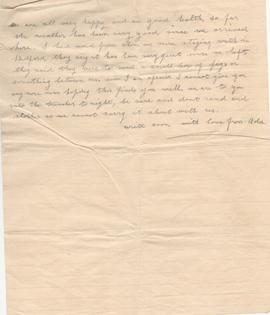 we are all very happy and in good health, so far
the weather has been very good since we arrived
here. I had word from them we were staying with in
Bedford, they say it has been very quiet since we left,
they said they were to send a small box of
something between us, am I an
say more now hoping this finds you well, as are to go
into the trenches to night, be sure and dont send any
as we cannot carry it about with us.
write soon, with love from Bob